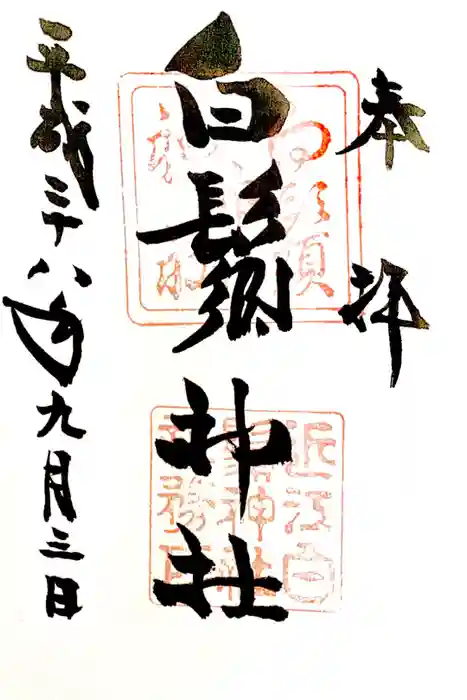 奉拝
白鬚神社
近江白
鬚神社
社務所
平成二十八年九月三日